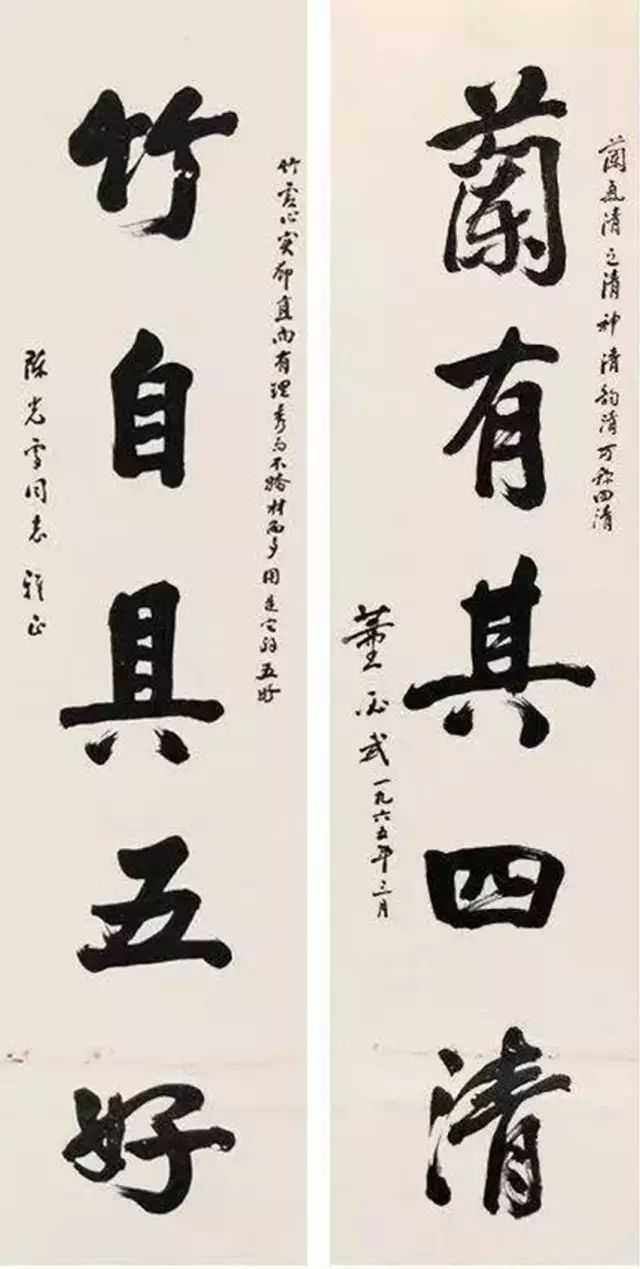 蘭氣清色清神清韵清可称四清
蘭有其四清
董必武 一九六五年三月
竹虚心实節直而有理秀而不娇材而多用是它的五好
竹自具五好
陈光雪同志雅正